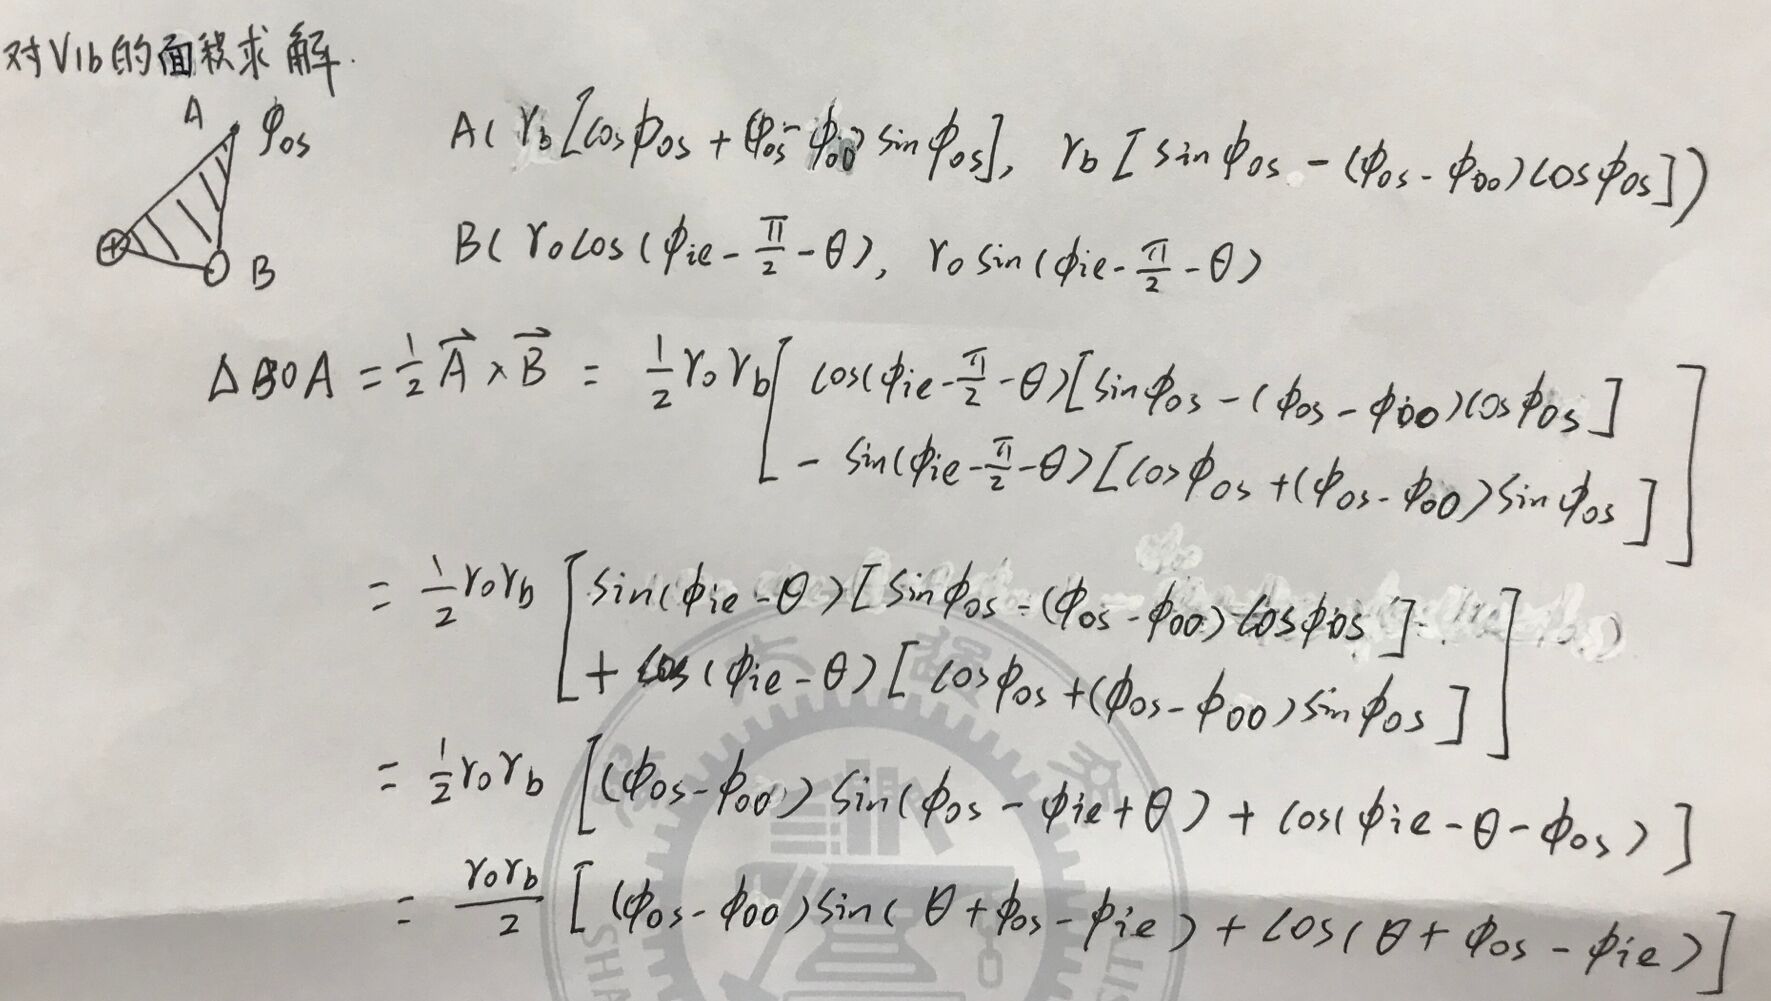 对V1b的面积求解.
A φos
B
A( rb[cosφos + (φos - φoo) sinφos], rb [sinφos - (φos - φoo)cosφos])
B( rocos(φie - π/2 - θ), ro sin(φie - π/2 - θ)
ΔBOA = 1/2 A⃗ × B⃗ = 1/2 ro rb [ cos(φie - π/2 - θ)[sinφos - (φos - φoo)cosφos]
- sin(φie - π/2 - θ)[cosφos + (φos - φoo)sinφos] ]
= 1/2 ro rb [ sin(φie - θ)[sinφos - (φos - φoo)cosφos]
+ cos(φie - θ)[cosφos + (φos - φoo)sinφos] ]
= 1/2 ro rb [(φos - φoo) sin(φos - φie + θ) + cos(φie - θ - φos)]
= ro rb/2 [(φos - φoo)sin(θ + φos - φie) + cos(θ + φos - φie)]